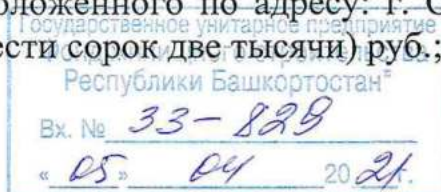 положенного по адресу: г. С
ести сорок две тысячи) руб.;
Государственное унитарное предприятие
Республики Башкортостан"
Вх. № 33-829
« 05 » 04 2021г.